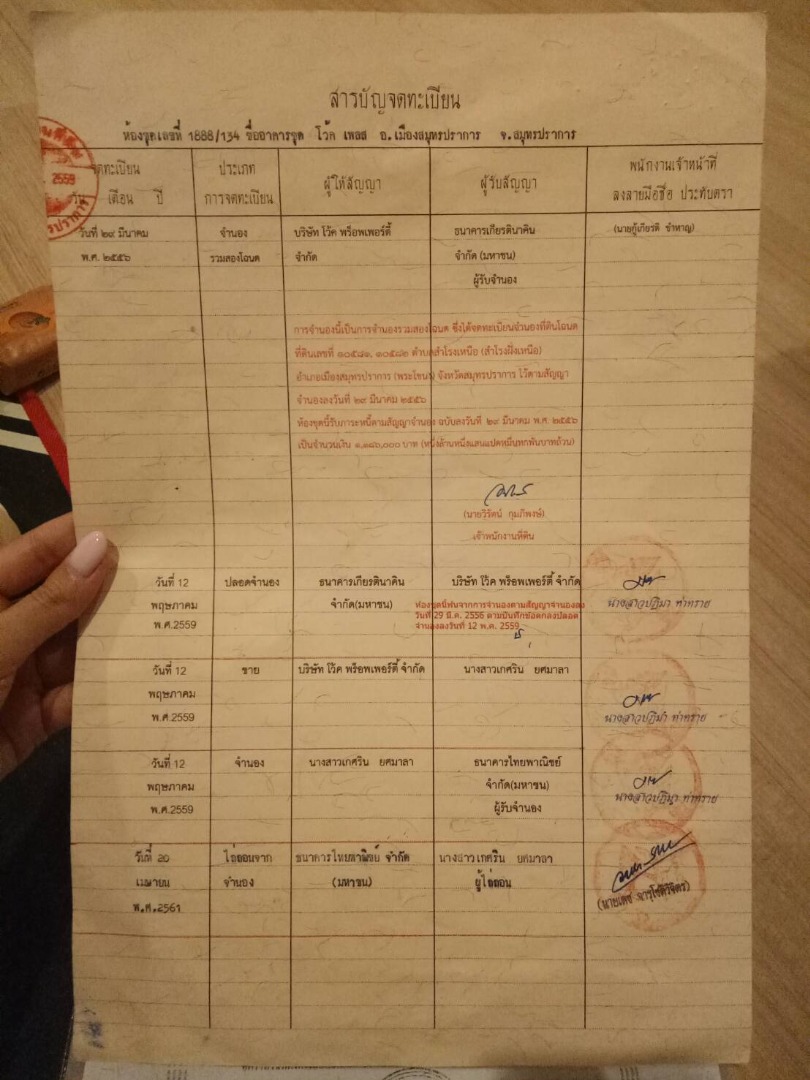 สารบัญจดทะเบียน
ห้องชุดเลขที่ 1888/134 ชื่ออาคารชุด โว้ค เพลส อ.เมืองสมุทรปราการ จ.สมุทรปราการ
จดทะเบียน
วัน เดือน ปี
ประเภท
การจดทะเบียน
ผู้ให้สัญญา
ผู้รับสัญญา
พนักงานเจ้าหน้าที่
ลงลายมือชื่อ ประทับตรา
2559
วันที่ ๒๙ มีนาคม
พ.ศ. ๒๕๕๖
จำนอง
รวมสองโฉนด
บริษัท โว้ค พร็อพเพอร์ตี้
จำกัด
ธนาคารเกียรตินาคิน
จำกัด (มหาชน)
ผู้รับจำนอง
(นายกู้เกียรติ ชำหาญ)
การจำนองนี้เป็นการจำนองรวมสองโฉนด ซึ่งได้จดทะเบียนจำนองที่ดินโฉนด
ที่ดินเลขที่ ๑๐๕๘๑, ๑๐๕๘๒ ตำบลสำโรงเหนือ (สำโรงฝั่งเหนือ)
อำเภอเมืองสมุทรปราการ (พระโขนง) จังหวัดสมุทรปราการ ไว้ตามสัญญา
จำนองลงวันที่ ๒๙ มีนาคม ๒๕๕๖
ห้องชุดนี้รับภาระหนี้ตามสัญญาจำนอง ฉบับลงวันที่ ๒๙ มีนาคม พ.ศ. ๒๕๕๖
เป็นจำนวนเงิน ๑,๑๘๖,๐๐๐ บาท (หนึ่งล้านหนึ่งแสนแปดหมื่นหกพันบาทถ้วน)
(นายวิรัตน์ กุมภีพงษ์)
เจ้าพนักงานที่ดิน
วันที่ 12
พฤษภาคม
พ.ศ.2559
ปลอดจำนอง
ธนาคารเกียรตินาคิน
จำกัด(มหาชน)
บริษัท โว้ค พร็อพเพอร์ตี้ จำกัด
ห้องชุดนี้พ้นจากการจำนองตามสัญญาจำนองลง
วันที่ 29 มี.ค. 2556 ตามบันทึกข้อตกลงปลอด
จำนองลงวันที่ 12 พ.ค. 2559
นางสาวปฏิมา ท่าทราย
วันที่ 12
พฤษภาคม
พ.ศ.2559
ขาย
บริษัท โว้ค พร็อพเพอร์ตี้ จำกัด
นางสาวเกศริน ยศมาลา
นางสาวปฏิมา ท่าทราย
วันที่ 12
พฤษภาคม
พ.ศ.2559
จำนอง
นางสาวเกศริน ยศมาลา
ธนาคารไทยพาณิชย์
จำกัด(มหาชน)
ผู้รับจำนอง
นางสาวปฏิมา ท่าทราย
วันที่ 20
เมษายน
พ.ศ.2561
ไถ่ถอนจาก
จำนอง
ธนาคารไทยพาณิชย์ จำกัด
(มหาชน)
นางสาวเกศริน ยศมาลา
ผู้ไถ่ถอน